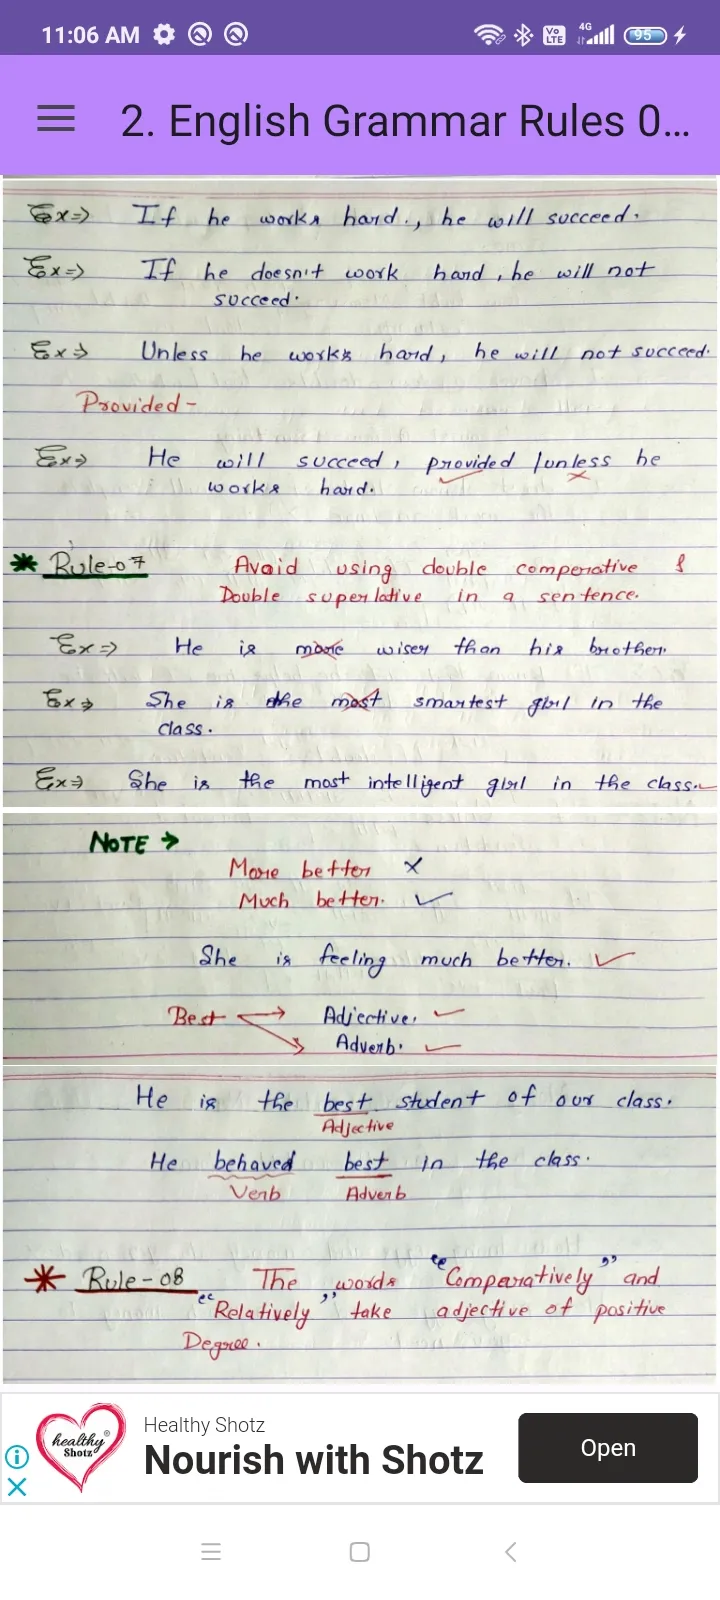 11:06 AM
Vo LTE 4G 95
2. English Grammar Rules 0...
Ex⇒ If he works hard., he will succeed.
Ex⇒ If he doesn't work hard, he will not
succeed.
Ex⇒ Unless he works hard, he will not succeed.
Provided-
Ex⇒ He will succeed, provided / unless he
works hard.
* Rule-07 Avoid using double comperative &
Double superlative in a sentence.
Ex⇒ He is more wiser than his brother.
Ex⇒ She is the most smartest girl in the
class.
Ex⇒ She is the most intelligent girl in the class.
NOTE →
More better ×
Much better. ✓
She is feeling much better. ✓
Best → Adjective. ✓
Adverb. ✓
He is the best student of our class.
Adjective
He behaved best in the class.
Verb Adverb
* Rule-08 The words "Comparatively" and
"Relatively" take adjective of positive
Degree.
healthy Shotz
Healthy Shotz
Nourish with Shotz
Open